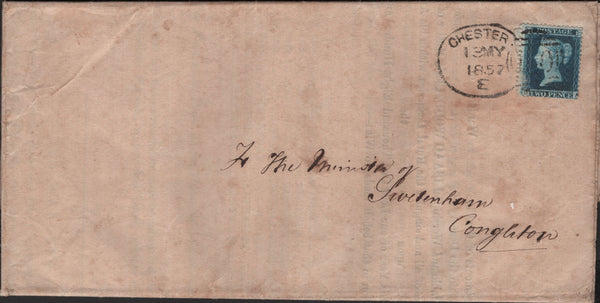 CHESTER
13MY
1857
E
POSTAGE
TWO PENCE
To The Minister of
Swetenham
Congleton